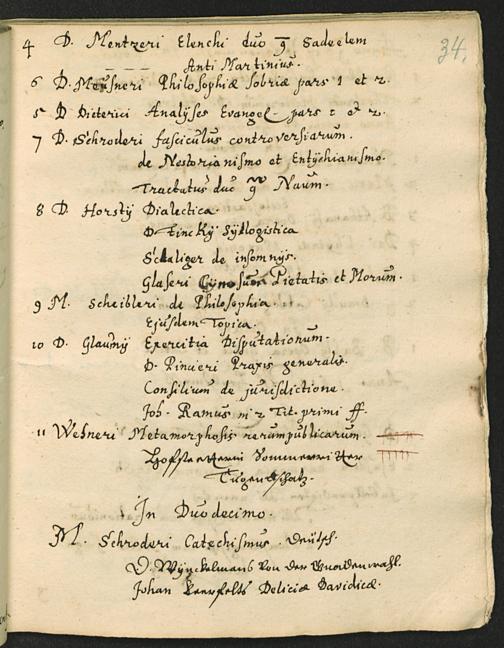 34.
4 D. Mentzeri Elenchi duo 9 Sadeelem
Anti Martinius.
6 D. Meusneri Philosophiæ sobriæ pars 1 et 2.
5 D Dieterici Analyses Evangel pars 1 et 2.
7 D. Schroderi fasciculus controversiarum.
de Nestorianismo et Entÿchianismo.
Tractatus duo Naum.
8 D. Horstÿ Dialectica.
D Finckÿ Sÿllogistica
Scaliger de insomnÿs.
Glaseri Cÿnosura Pietatis et Morum.
9 M. Scheibleri de Philosophia.
Ejusdem Topica.
10 D. Exercitia Disputationum.
D. Pincieri Praxis generalis.
Consilium de jurisdictione.
Joh. Ramus in 2 Tit. primi ff.
11 Wehneri Metamorphosis rerumpublicarum.
Tugendschatz.
In Duodecimo.
M. Schroderi Catechismus. deutsch.
D. Wÿnckelmans Von der Gnadenwahl.
Johan Deliciæ Davidicæ.